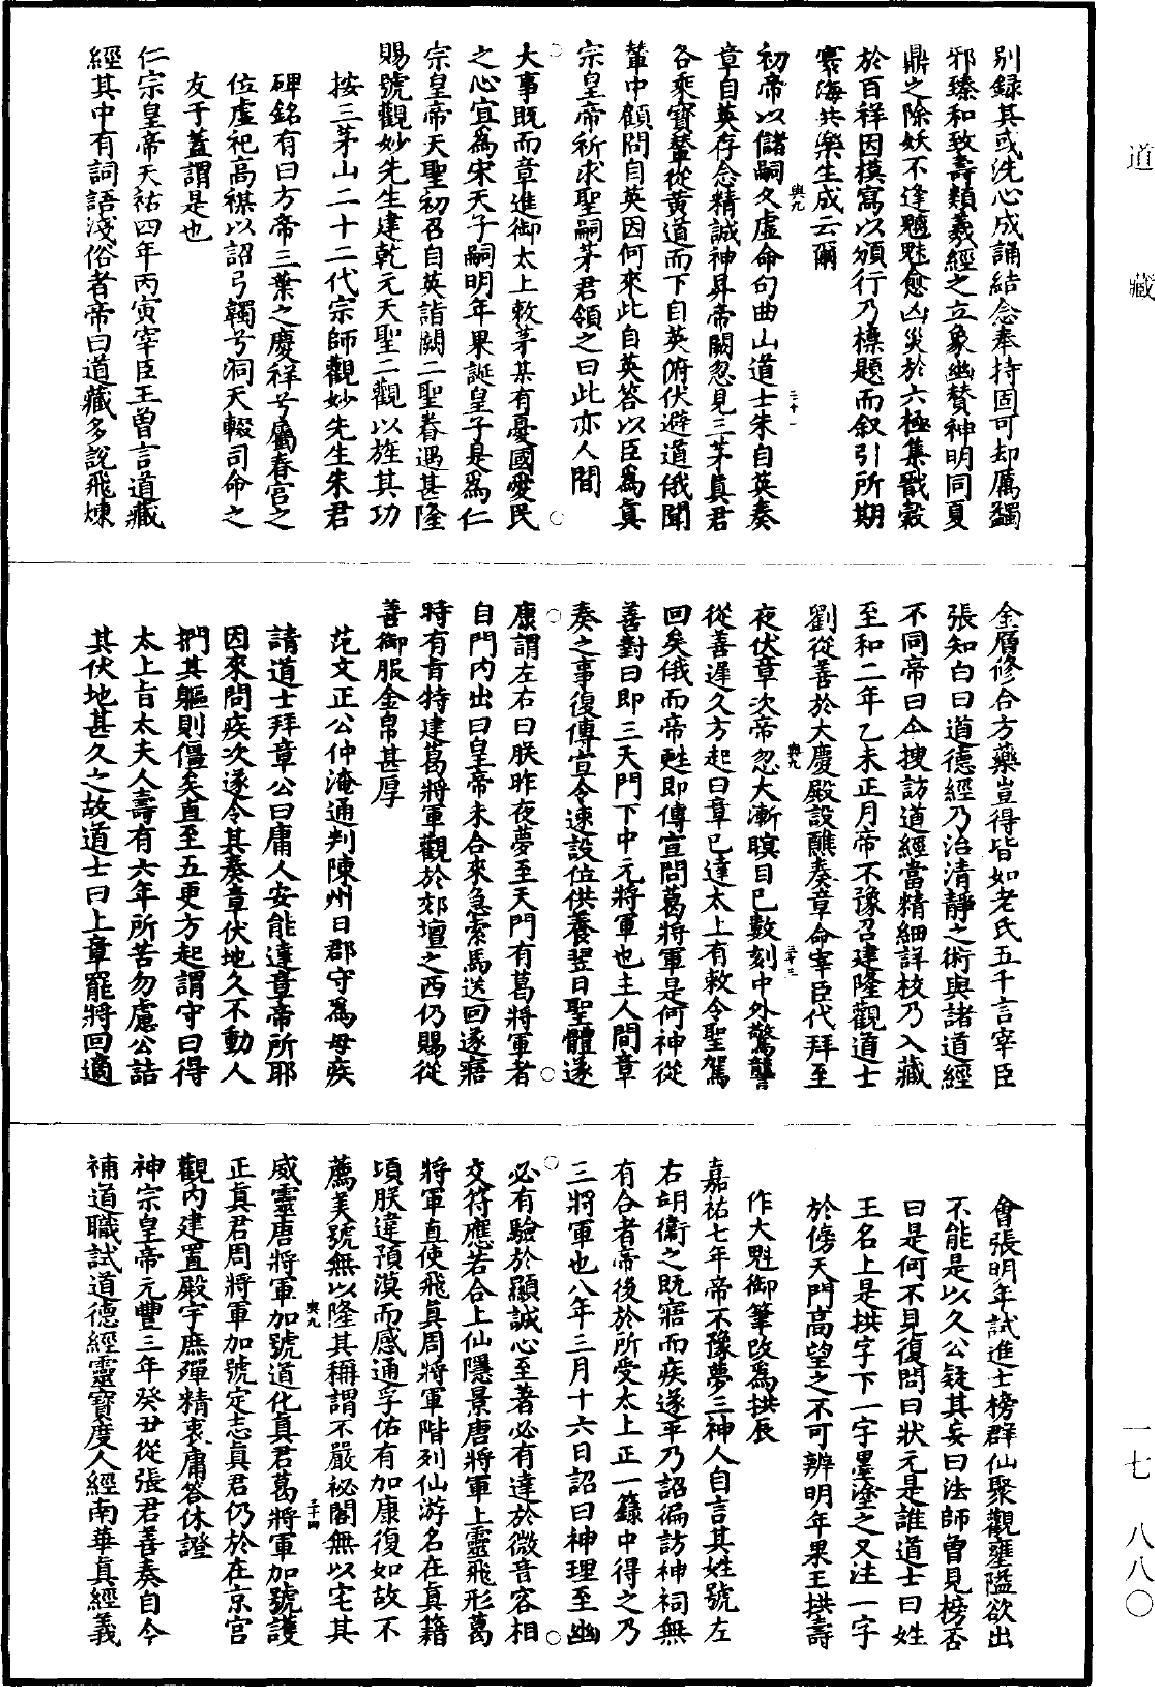 別録其或洗心成誦結念奉持固可却厲蠲
邪臻和致壽類羲經之立象幽賛神明同夏
鼎之除妖不逢魑魅愈凶災於六極集戩穀
於百祥因模寫以頒行乃標題而叙引所期
寰海共樂生成云爾
初帝以儲嗣久虛命句曲山道士朱自英奏
章自英存念精誠神昇帝闕忽見三茅真君
各乘寳輦從黃道而下自英俯伏避道俄聞
輦中顧問自英因何來此自英答以臣爲真
宗皇帝祈求聖嗣茅君領之曰此亦人間
大事既而章進御太上敕茅某有憂國愛民
之心宜爲宋天子嗣明年果誕皇子是爲仁
宗皇帝天聖初召自英詣闕二聖眷遇甚隆
賜號觀妙先生建乾元天聖二觀以旌其功
按三茅山二十二代宗師觀妙先生朱君
碑銘有曰方帝三葉之慶祥兮屬春宮之
位虛祀高禖以詔弓韣兮洞天輟司命之
友于蓋謂是也
仁宗皇帝天祐四年丙寅宰臣王曾言道藏
經其中有詞語淺俗者帝曰道藏多說飛煉
金層修合方藥豈得皆如老氏五千言宰臣
張知白曰道德經乃治清靜之術與諸道經
不同帝曰今搜訪道經當精細詳校乃入藏
至和二年乙未正月帝不豫召建隆觀道士
劉從善於大慶殿設醮奏章命宰臣代拜至
夜伏章次帝忽大漸瞑目已數刻中外驚讋
從善遲久方起曰章已達太上有敕令聖駕
回矣俄而帝甦即傳宣問葛將軍是何神從
善對曰即三天門下中元將軍也主人間章
奏之事復傳宣令速設位供養翌日聖體遂
康謂左右曰朕昨夜夢至天門有葛將軍者
自門內出曰皇帝未合來急索馬送回遂寤
時有旨特建葛將軍觀於郊壇之西仍賜從
善御服金帛甚厚
范文正公仲淹通判陳州日郡守爲母疾
請道士拜章公曰庸人安能達章帝所耶
因來問疾次遂令其奏章伏地久不動人
捫其軀則僵矣直至五更方起謂守曰得
太上旨太夫人壽有六年所苦勿慮公詰
其伏地甚久之故道士曰上章罷將回適
會張明年試進士榜群仙聚觀壅隘欲出
不能是以久公疑其妄曰法師曾見榜否
曰是何不見復問曰狀元是誰道士曰姓
王名上是拱字下一字墨塗之又注一字
於傍天門高望之不可辨明年果王拱壽
作大魁御筆改爲拱辰
嘉祐七年帝不豫夢三神人自言其姓號左
右胡衛之既寤而疾遂平乃詔徧訪神祠無
有合者帝後於所受太上正一籙中得之乃
三將軍也八年三月十六日詔曰神理至幽
必有驗於顯誠心至著必有達於微音容相
交符應若合上仙隱景唐將軍上靈飛形葛
將軍直使飛真周將軍階列仙游名在真籍
項朕違預漠而感通孚佑有加康復如故不
薦美號無以隆其稱謂不嚴祕閣無以宅其
威靈唐將軍加號道化真君葛將軍加號護
正真君周將軍加號定志真君仍於在京宮
觀內建置殿宇庶殫精衷庸答休證
神宗皇帝元豐三年癸丑從張君善奏自今
補道職試道德經靈寶度人經南華真經義
道藏
一七 八八〇
輿九
三十一
輿九
輿九
三十四